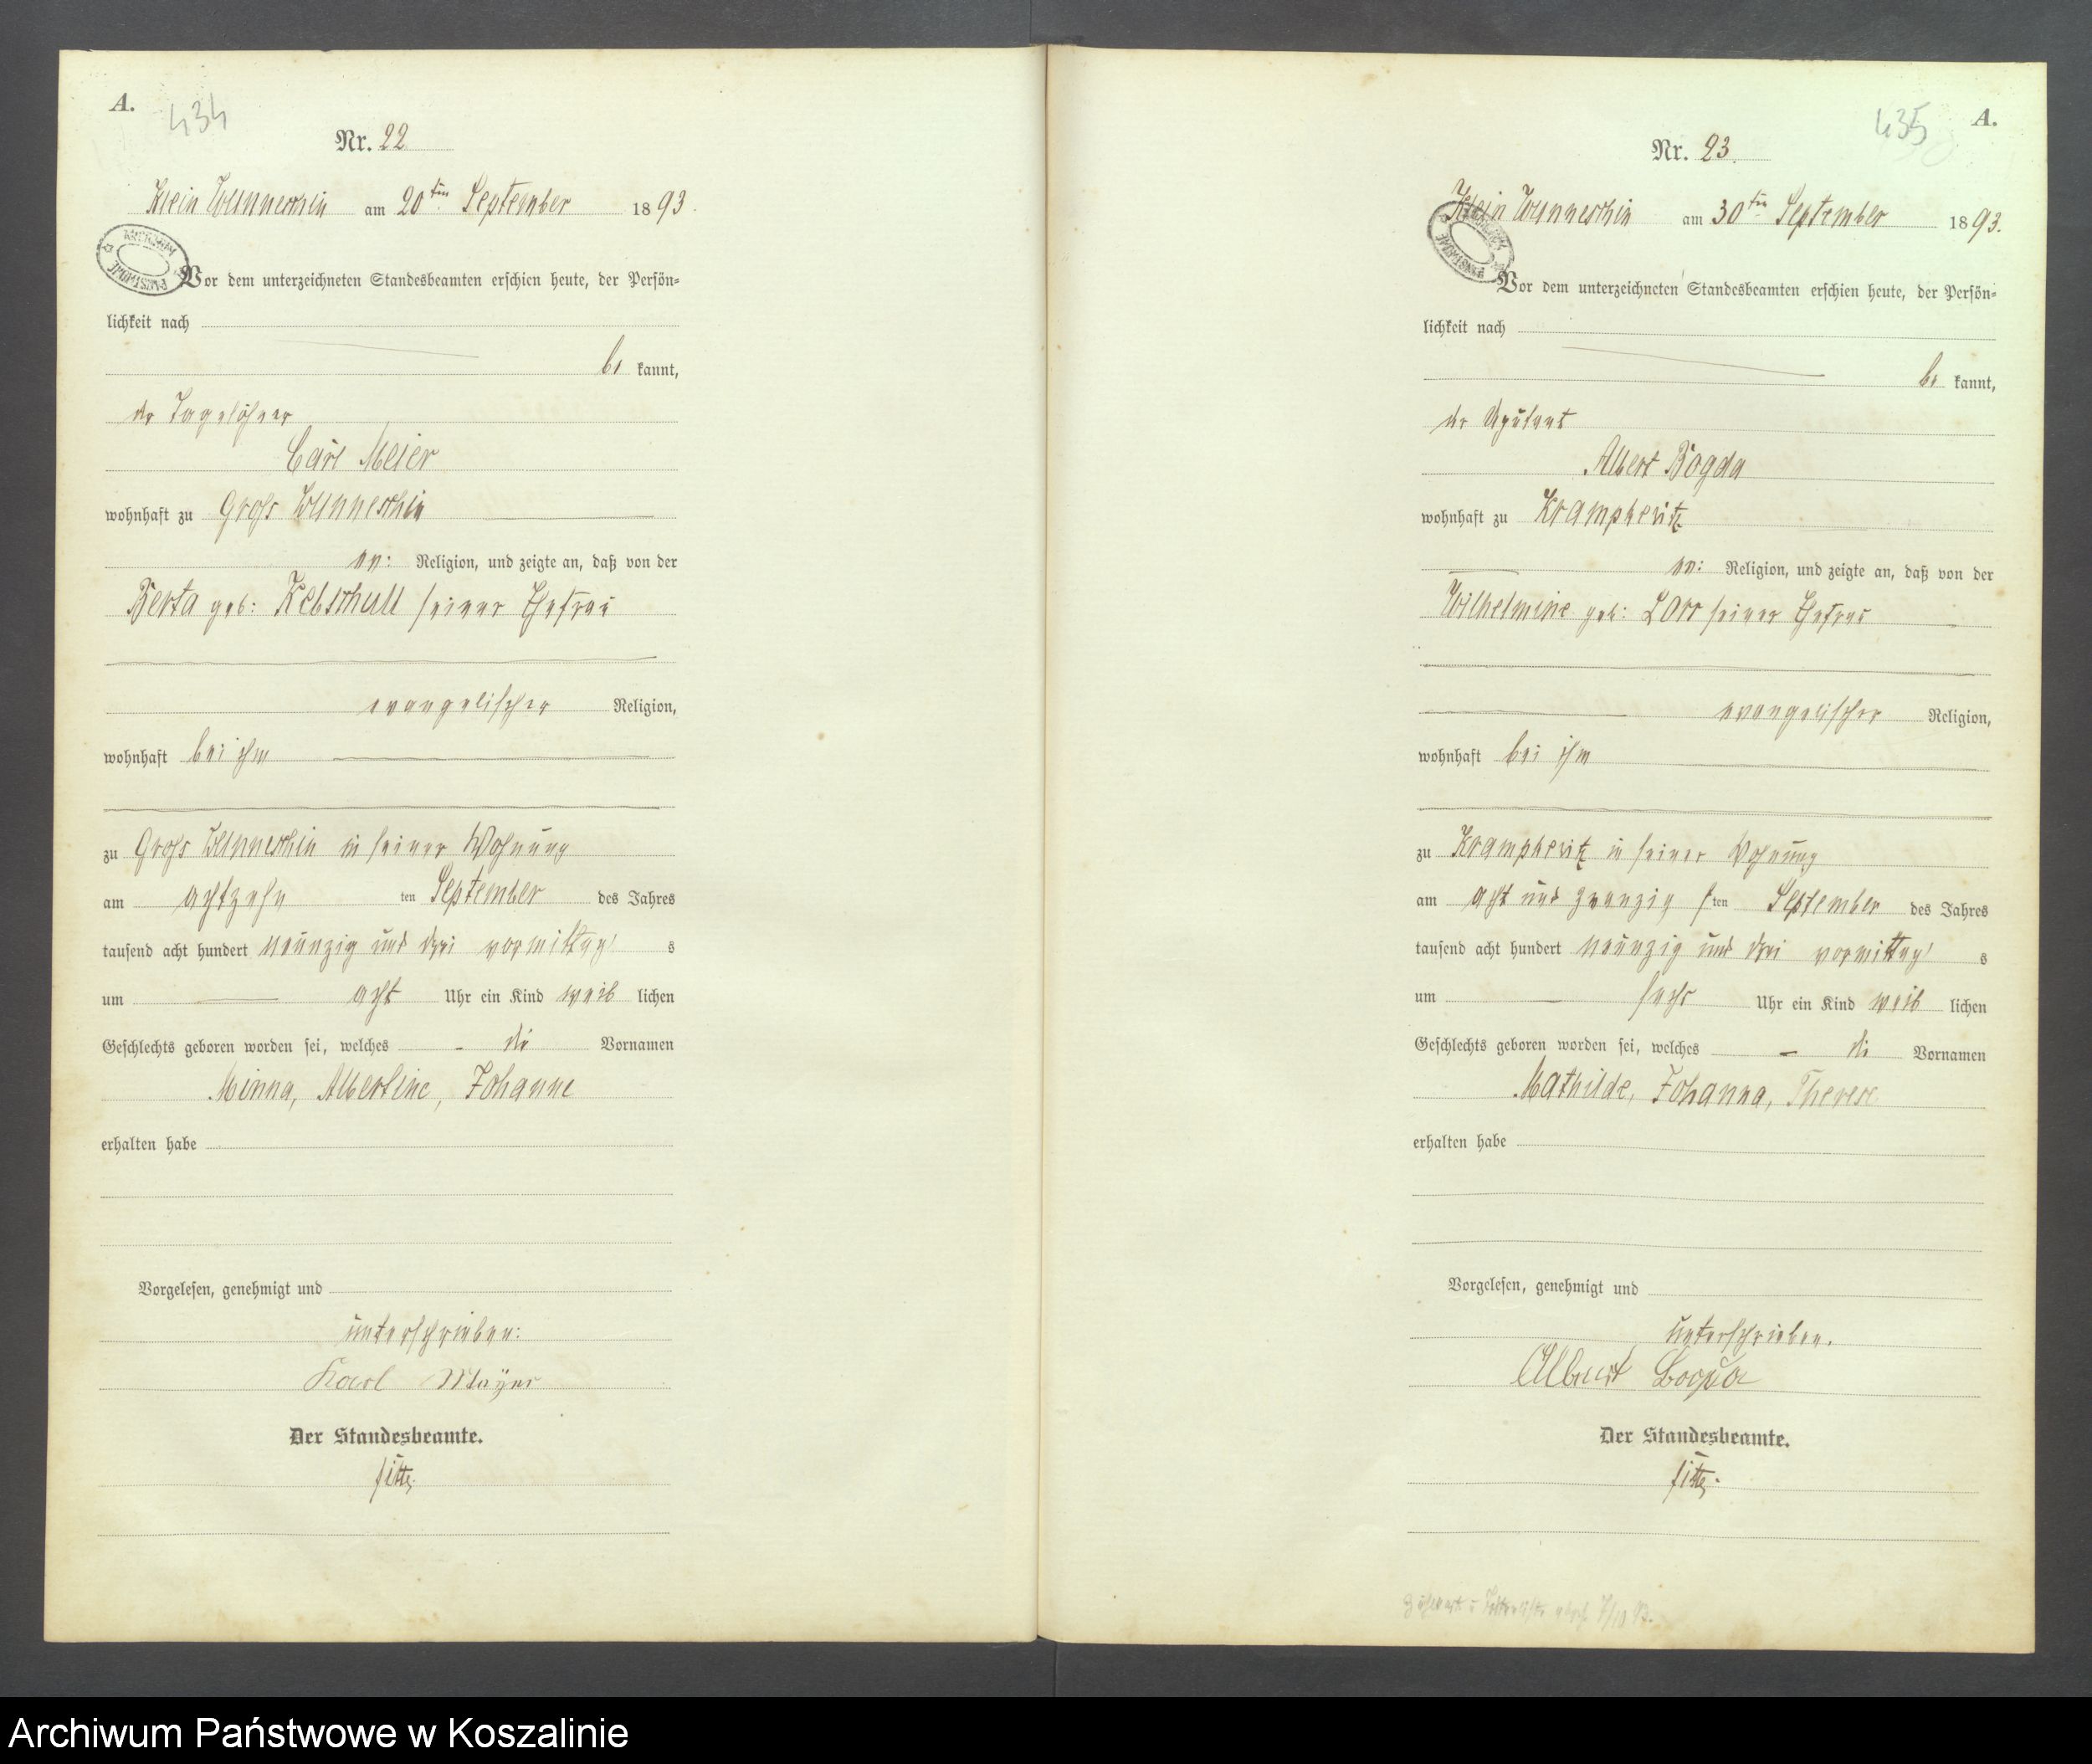 A.
434
Nr. 22
Klein Wunneschin am 20ten September 1893.
ARCHIWUM PAŃSTWOWE
Vor dem unterzeichneten Standesbeamten erschien heute, der Persön=
lichkeit nach
be kannt,
der Tagelöhner
Carl Meier
wohnhaft zu Groß Wunneschin
ev: Religion, und zeigte an, daß von der
Berta geb: Kebschull seiner Ehefrau
evangelischer Religion,
wohnhaft bei ihm
zu Groß Wunneschin in seiner Wohnung
am achtzehn ten September des Jahres
tausend acht hundert neunzig und drei vormittag s
um acht Uhr ein Kind weib lichen
Geschlechts geboren worden sei, welches die Vornamen
Minna, Albertine, Johanne
erhalten habe
Vorgelesen, genehmigt und
unterschrieben:
Karl Mayer
Der Standesbeamte.
A.
435
Nr. 23.
Klein Wunneschin am 30ten September 1893.
ARCHIWUM PAŃSTWOWE
Vor dem unterzeichneten Standesbeamten erschien heute, der Persön=
lichkeit nach
be kannt,
der
Albert Bogda
wohnhaft zu Krampkewitz
ev: Religion, und zeigte an, daß von der
Wilhelmine geb: Lorr seiner Ehefrau
evangelischer Religion,
wohnhaft bei ihm
zu Krampkewitz in seiner Wohnung
am acht und zwanzig sten September des Jahres
tausend acht hundert neunzig und drei vormittag s
um sechs Uhr ein Kind weib lichen
Geschlechts geboren worden sei, welches die Vornamen
Mathilde, Johanna, Therese
erhalten habe
Vorgelesen, genehmigt und
unterschrieben.
Albert
Der Standesbeamte.
7/10 93.
Archiwum Państwowe w Koszalinie